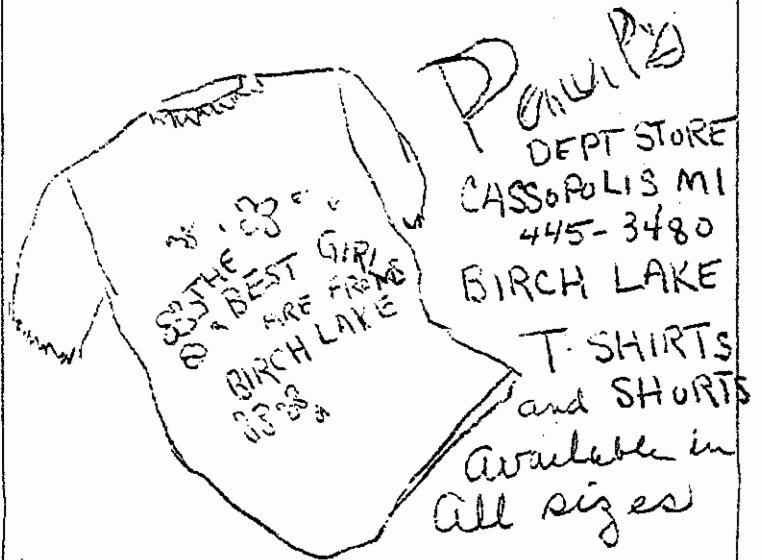 THE
BEST GIRL
ARE FROM
BIRCH LAKE
DEPT STORE
CASSOPOLIS MI
445-3480
BIRCH LAKE
T-SHIRTS
and SHORTS
Available in
All sizes